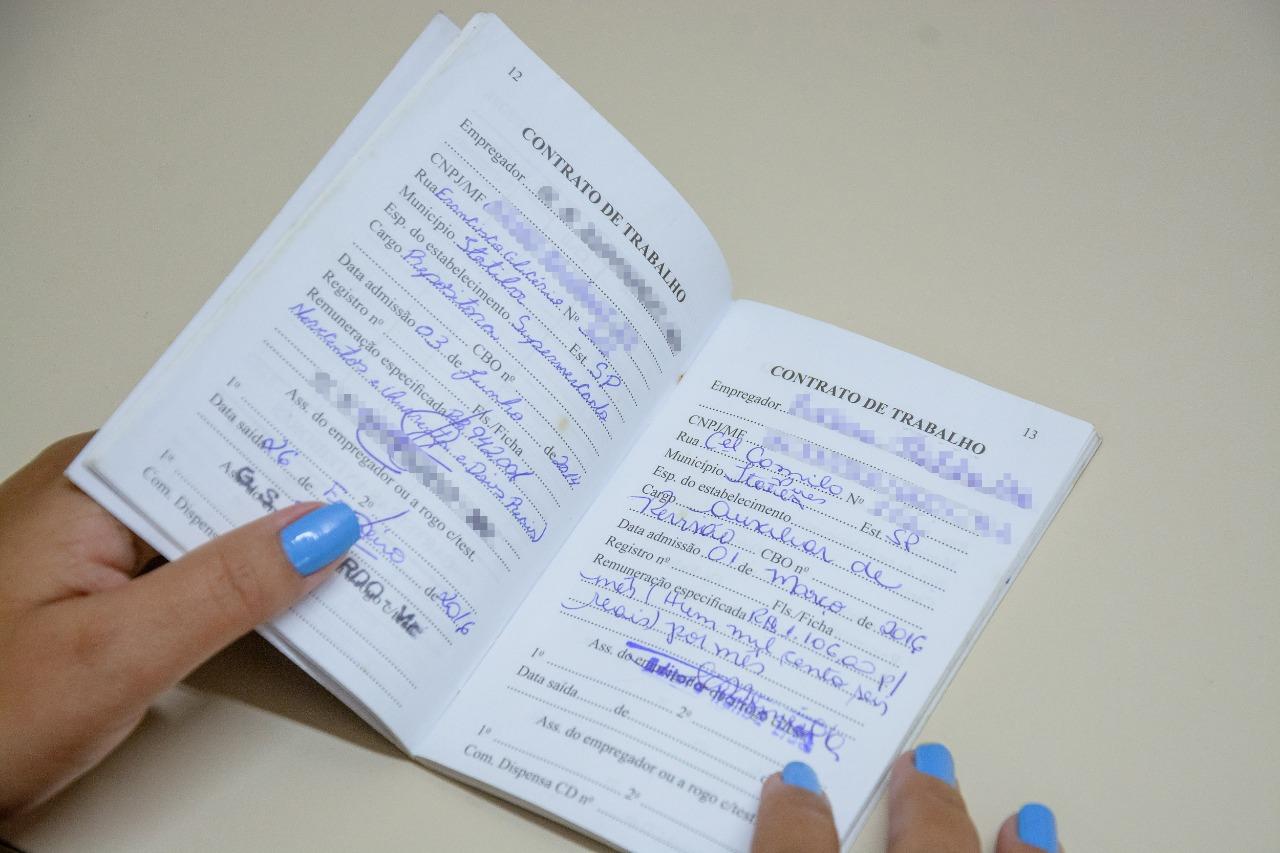 12
CONTRATO DE TRABALHO
Empregador
CNPJ/MF
Rua Francisco Glicério Nº
Município Itatiba Est. SP
Esp. do estabelecimento Supermercado
Cargo Repositora
CBO nº
Data admissão 03 de Junho de 2014
Registro nº Fls/Ficha
Remuneração especificada R$ 942,00
Novecentos e e Dois Reais)
Ass. do empregador ou a rogo c/test.
1º 2º
Data saída 26 de de 2016
1º
Com. Dispensa
13
CONTRATO DE TRABALHO
Empregador
CNPJ/MF
Rua Cel Camilo Pires Nº
Município Itatiba Est. SP
Esp. do estabelecimento
Cargo Auxiliar de
Revisão CBO nº
Data admissão 01 de Março de 2016
Registro nº Fls./Ficha
Remuneração especificada R$ 1.106,00 p/
mês (Hum mil cento seis
reais) por mês
Ass. do
1º 2º
Data saída de
Ass. do empregador ou a rogo c/test.
1º 2º
Com. Dispensa CD nº